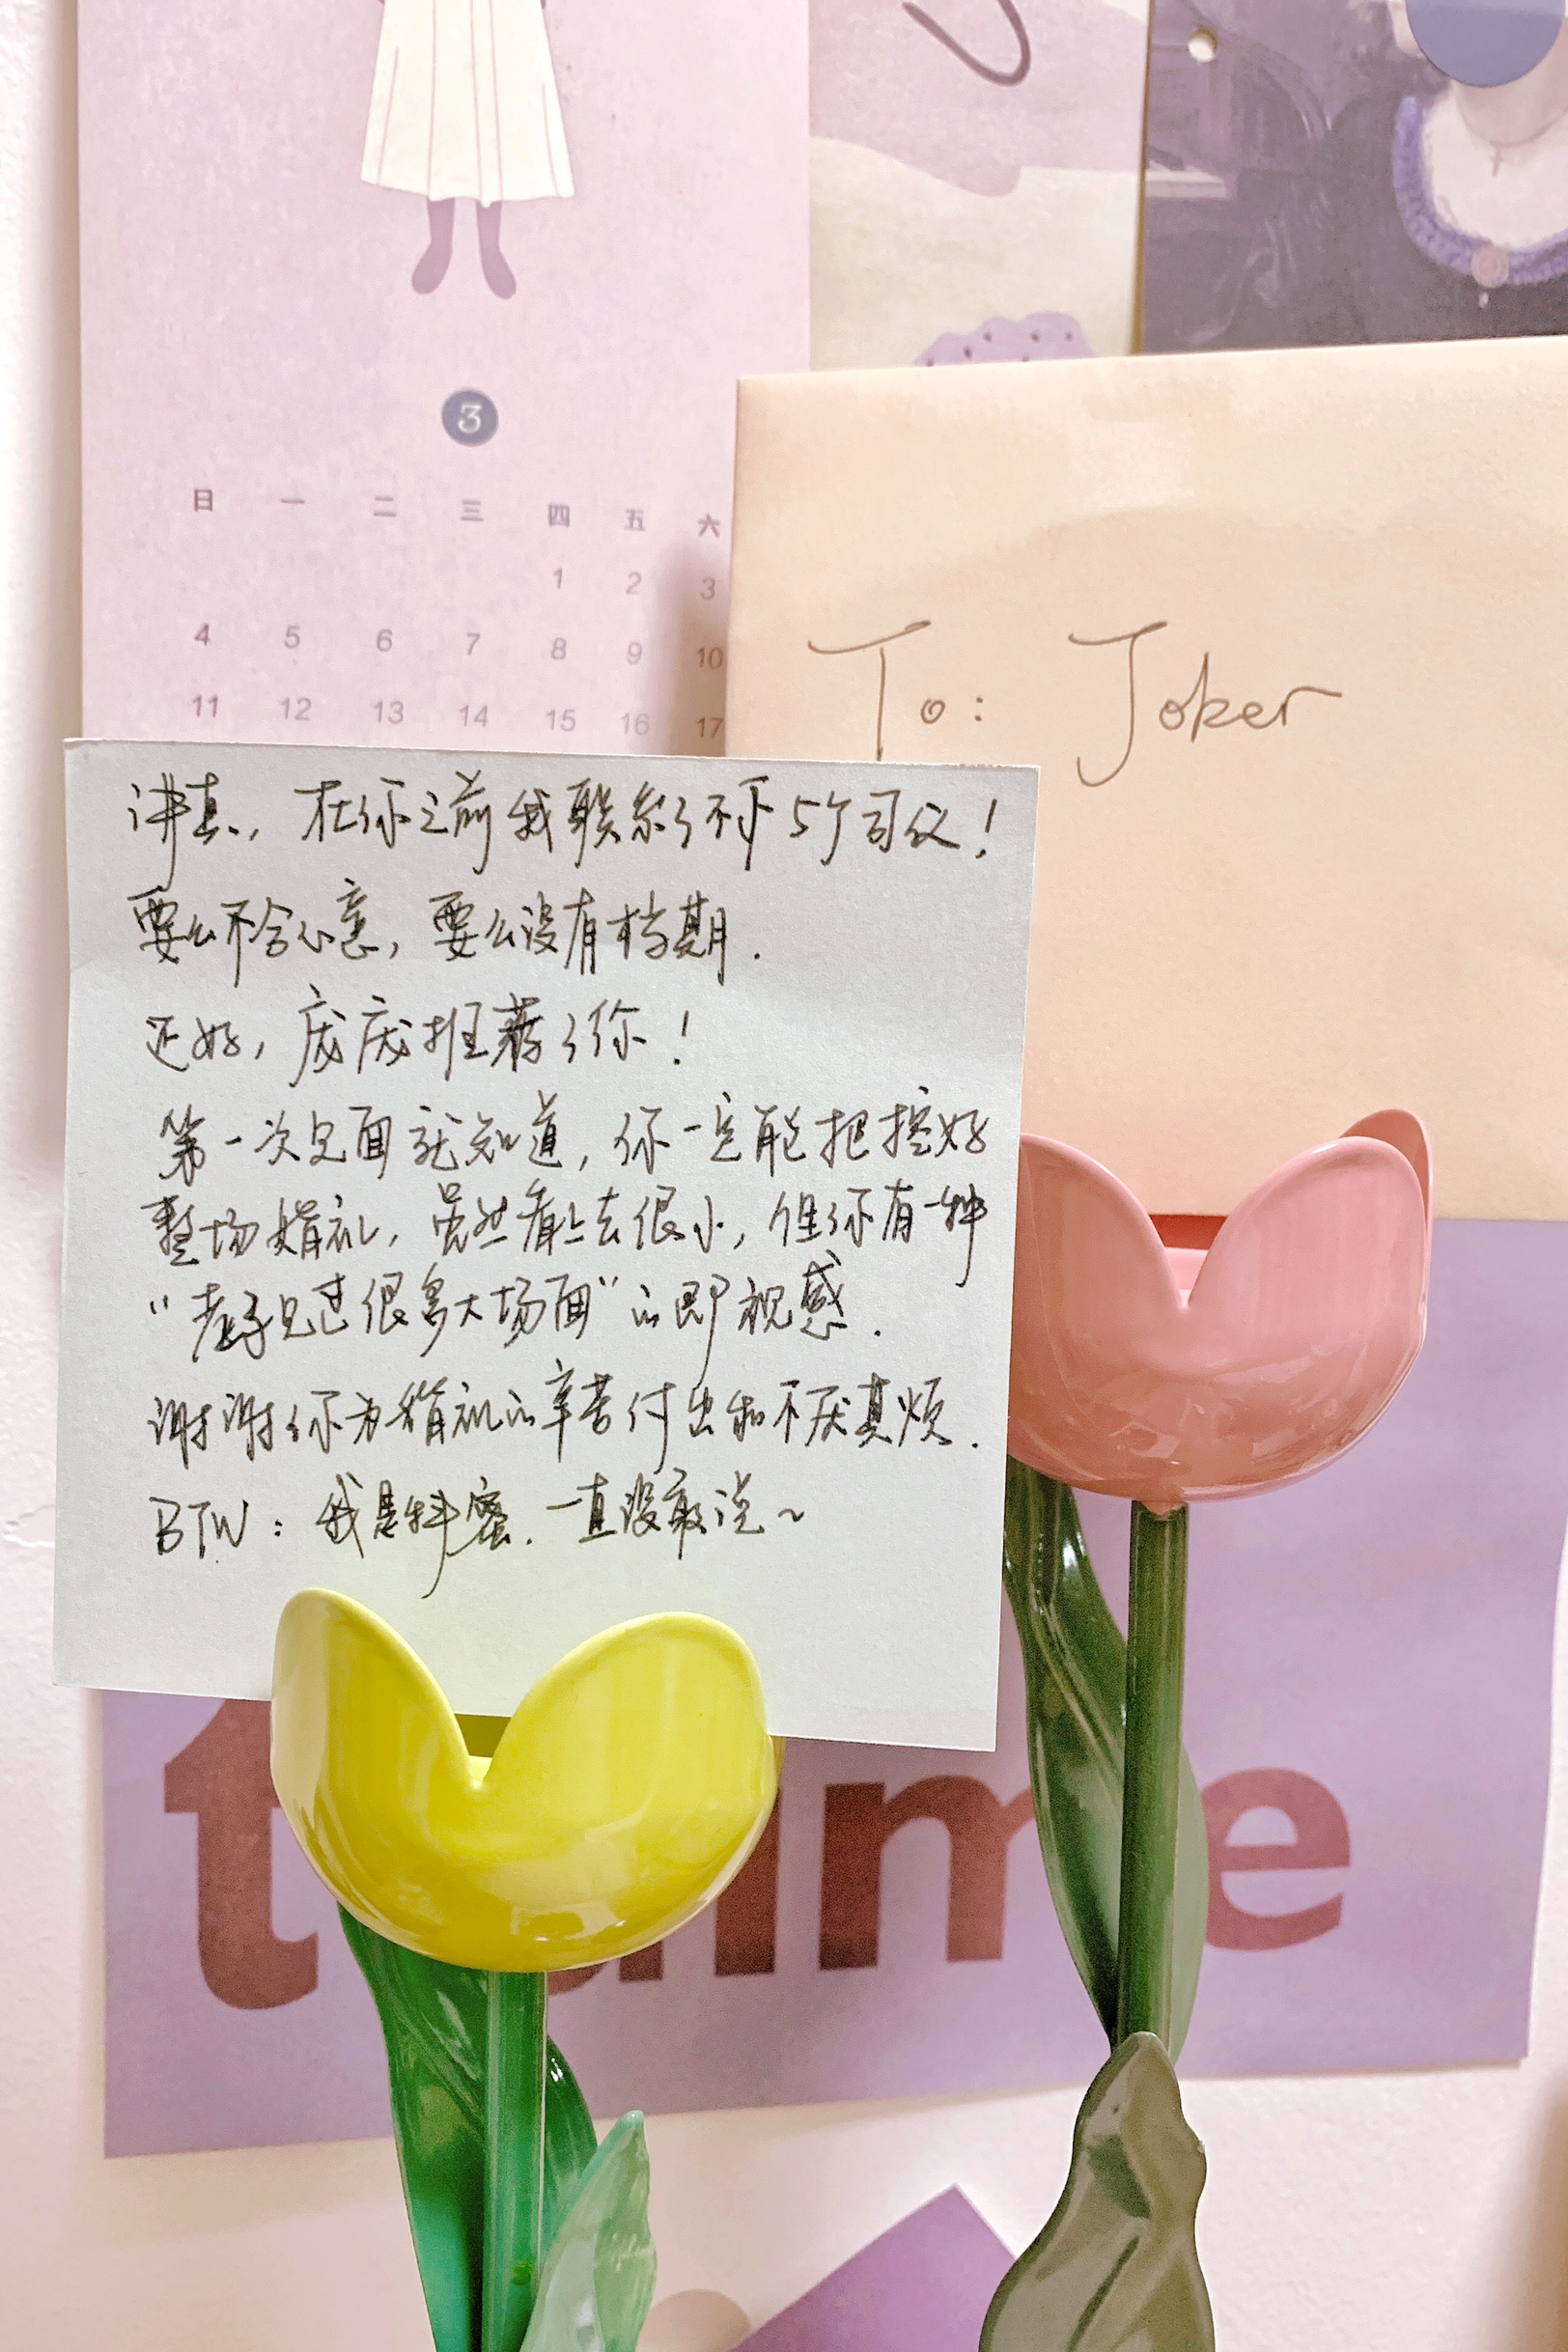 3
日 一 二 三 四 五 六
1 2 3
4 5 6 7 8 9 10
11 12 13 14 15 16 17
To: Joker
讲真，在你之前我联系了不下5个司仪！
要么不合心意，要么没有档期.
还好，庞庞推荐了你！
第一次见面就知道，你一定能把控好
整场婚礼，虽然看上去很小，但你有一种
“老子见过很多大场面”的即视感.
谢谢你为婚礼的辛苦付出和不厌其烦.
BTW：我是抖蜜.一直没敢说~